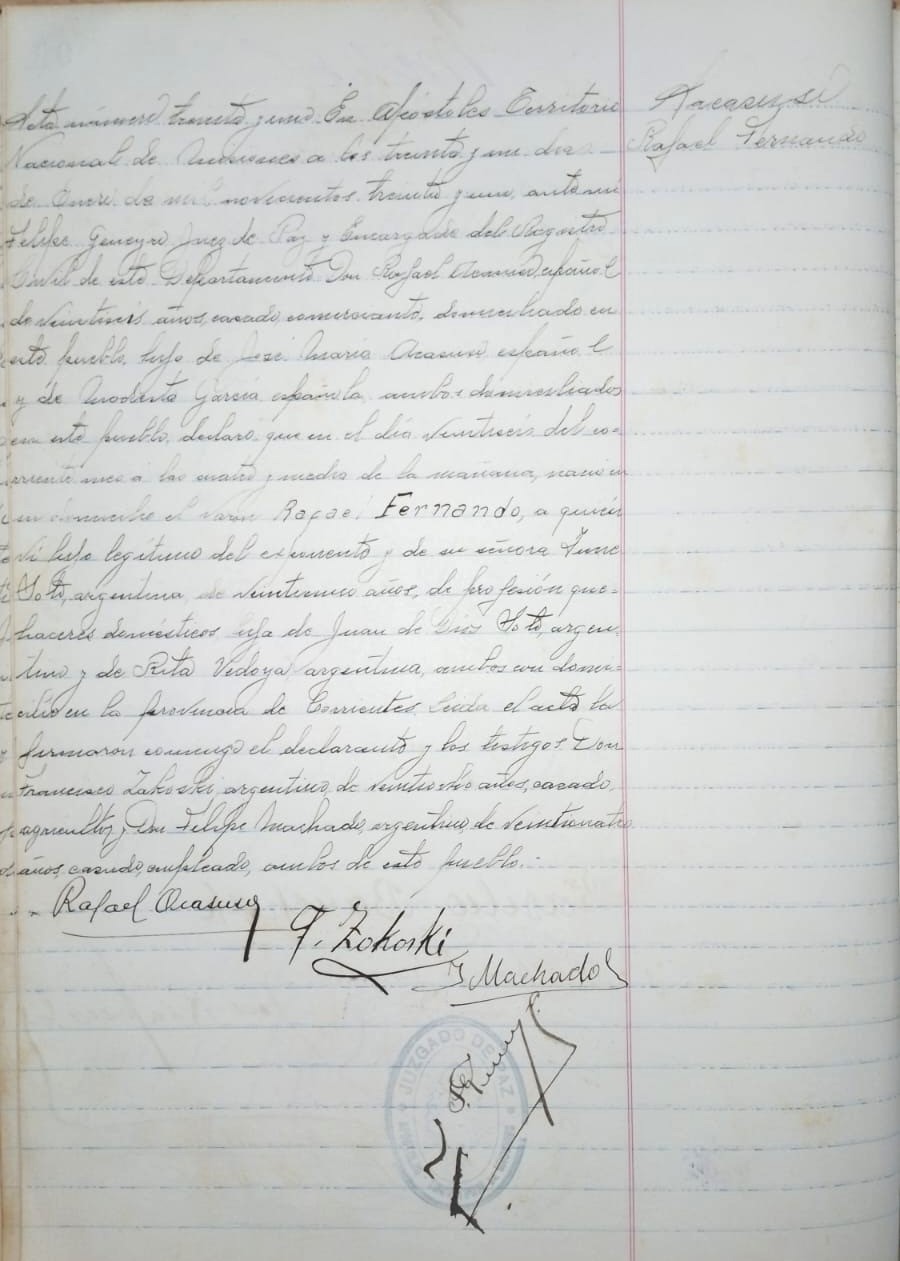 Acta número treinta y uno. En Apóstoles Territorio
Nacional de Misiones a los treinta y un dias
de Enero de mil novecientos treinta y uno, ante mi
Felipe Geneyro Juez de Paz y Encargado del Registro
Civil de este Departamento Don Rafael Acasuso, español
de veintiseis años, casado, comerciante, domiciliado en
este pueblo, hijo de José Maria Acasuso español
y de Modesta García española, ambos domiciliados
en este pueblo, declaró que en el día veintiseis del co-
rriente mes a las cuatro y media de la mañana, nació en
su domicilio el varon Rafael Fernando, a quien
vi hijo legítimo del exponente y de su señora
Soto, argentina, de años, de profesión que-
haceres domésticos hija de Juan de Dios Soto, argen-
tino y de Rita Vedoya argentina, ambos con domi-
cilio en la provincia de Corrientes. Leida el acta la
firmaron conmigo el declarante y los testigos Don
Francisco Zakoski, argentino, de veintiocho años, casado,
agricultor y Don Felipe Machado, argentino, de veinticuatro
años, casado, empleado, ambos de este pueblo.-
Rafael Acasuso
F. Zokoski
Machado
JUZGADO DE PAZ
Rafael Fernando